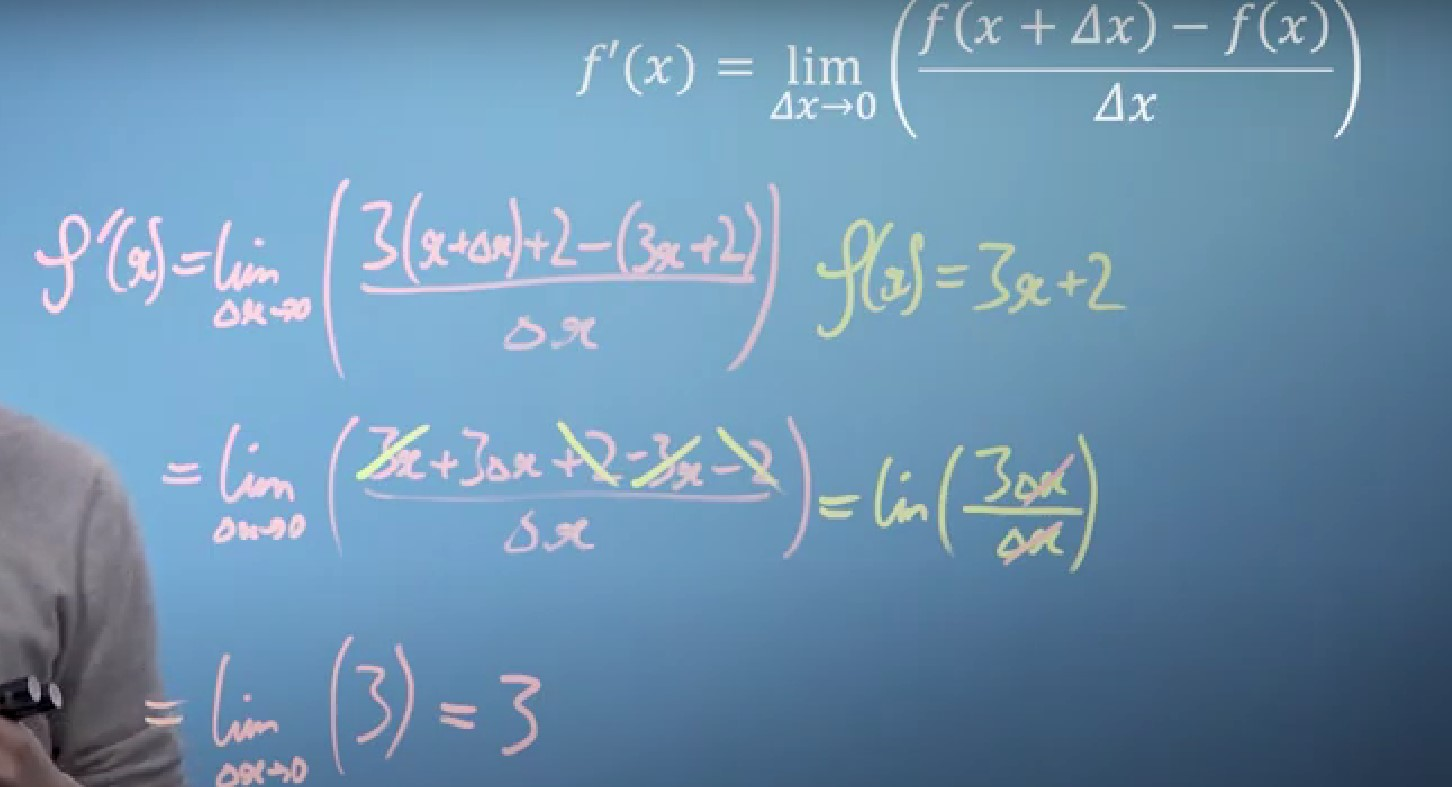 f'(x) = lim Δx→0 ( (f(x + Δx) − f(x)) / Δx )
f'(x) = lim Δx→0 ( (3(x+Δx)+2−(3x+2)) / Δx ) f(x) = 3x+2
= lim Δx→0 ( (3x+3Δx+2−3x−2) / Δx ) = lin ( 3Δx / Δx )
= lim Δx→0 (3) = 3